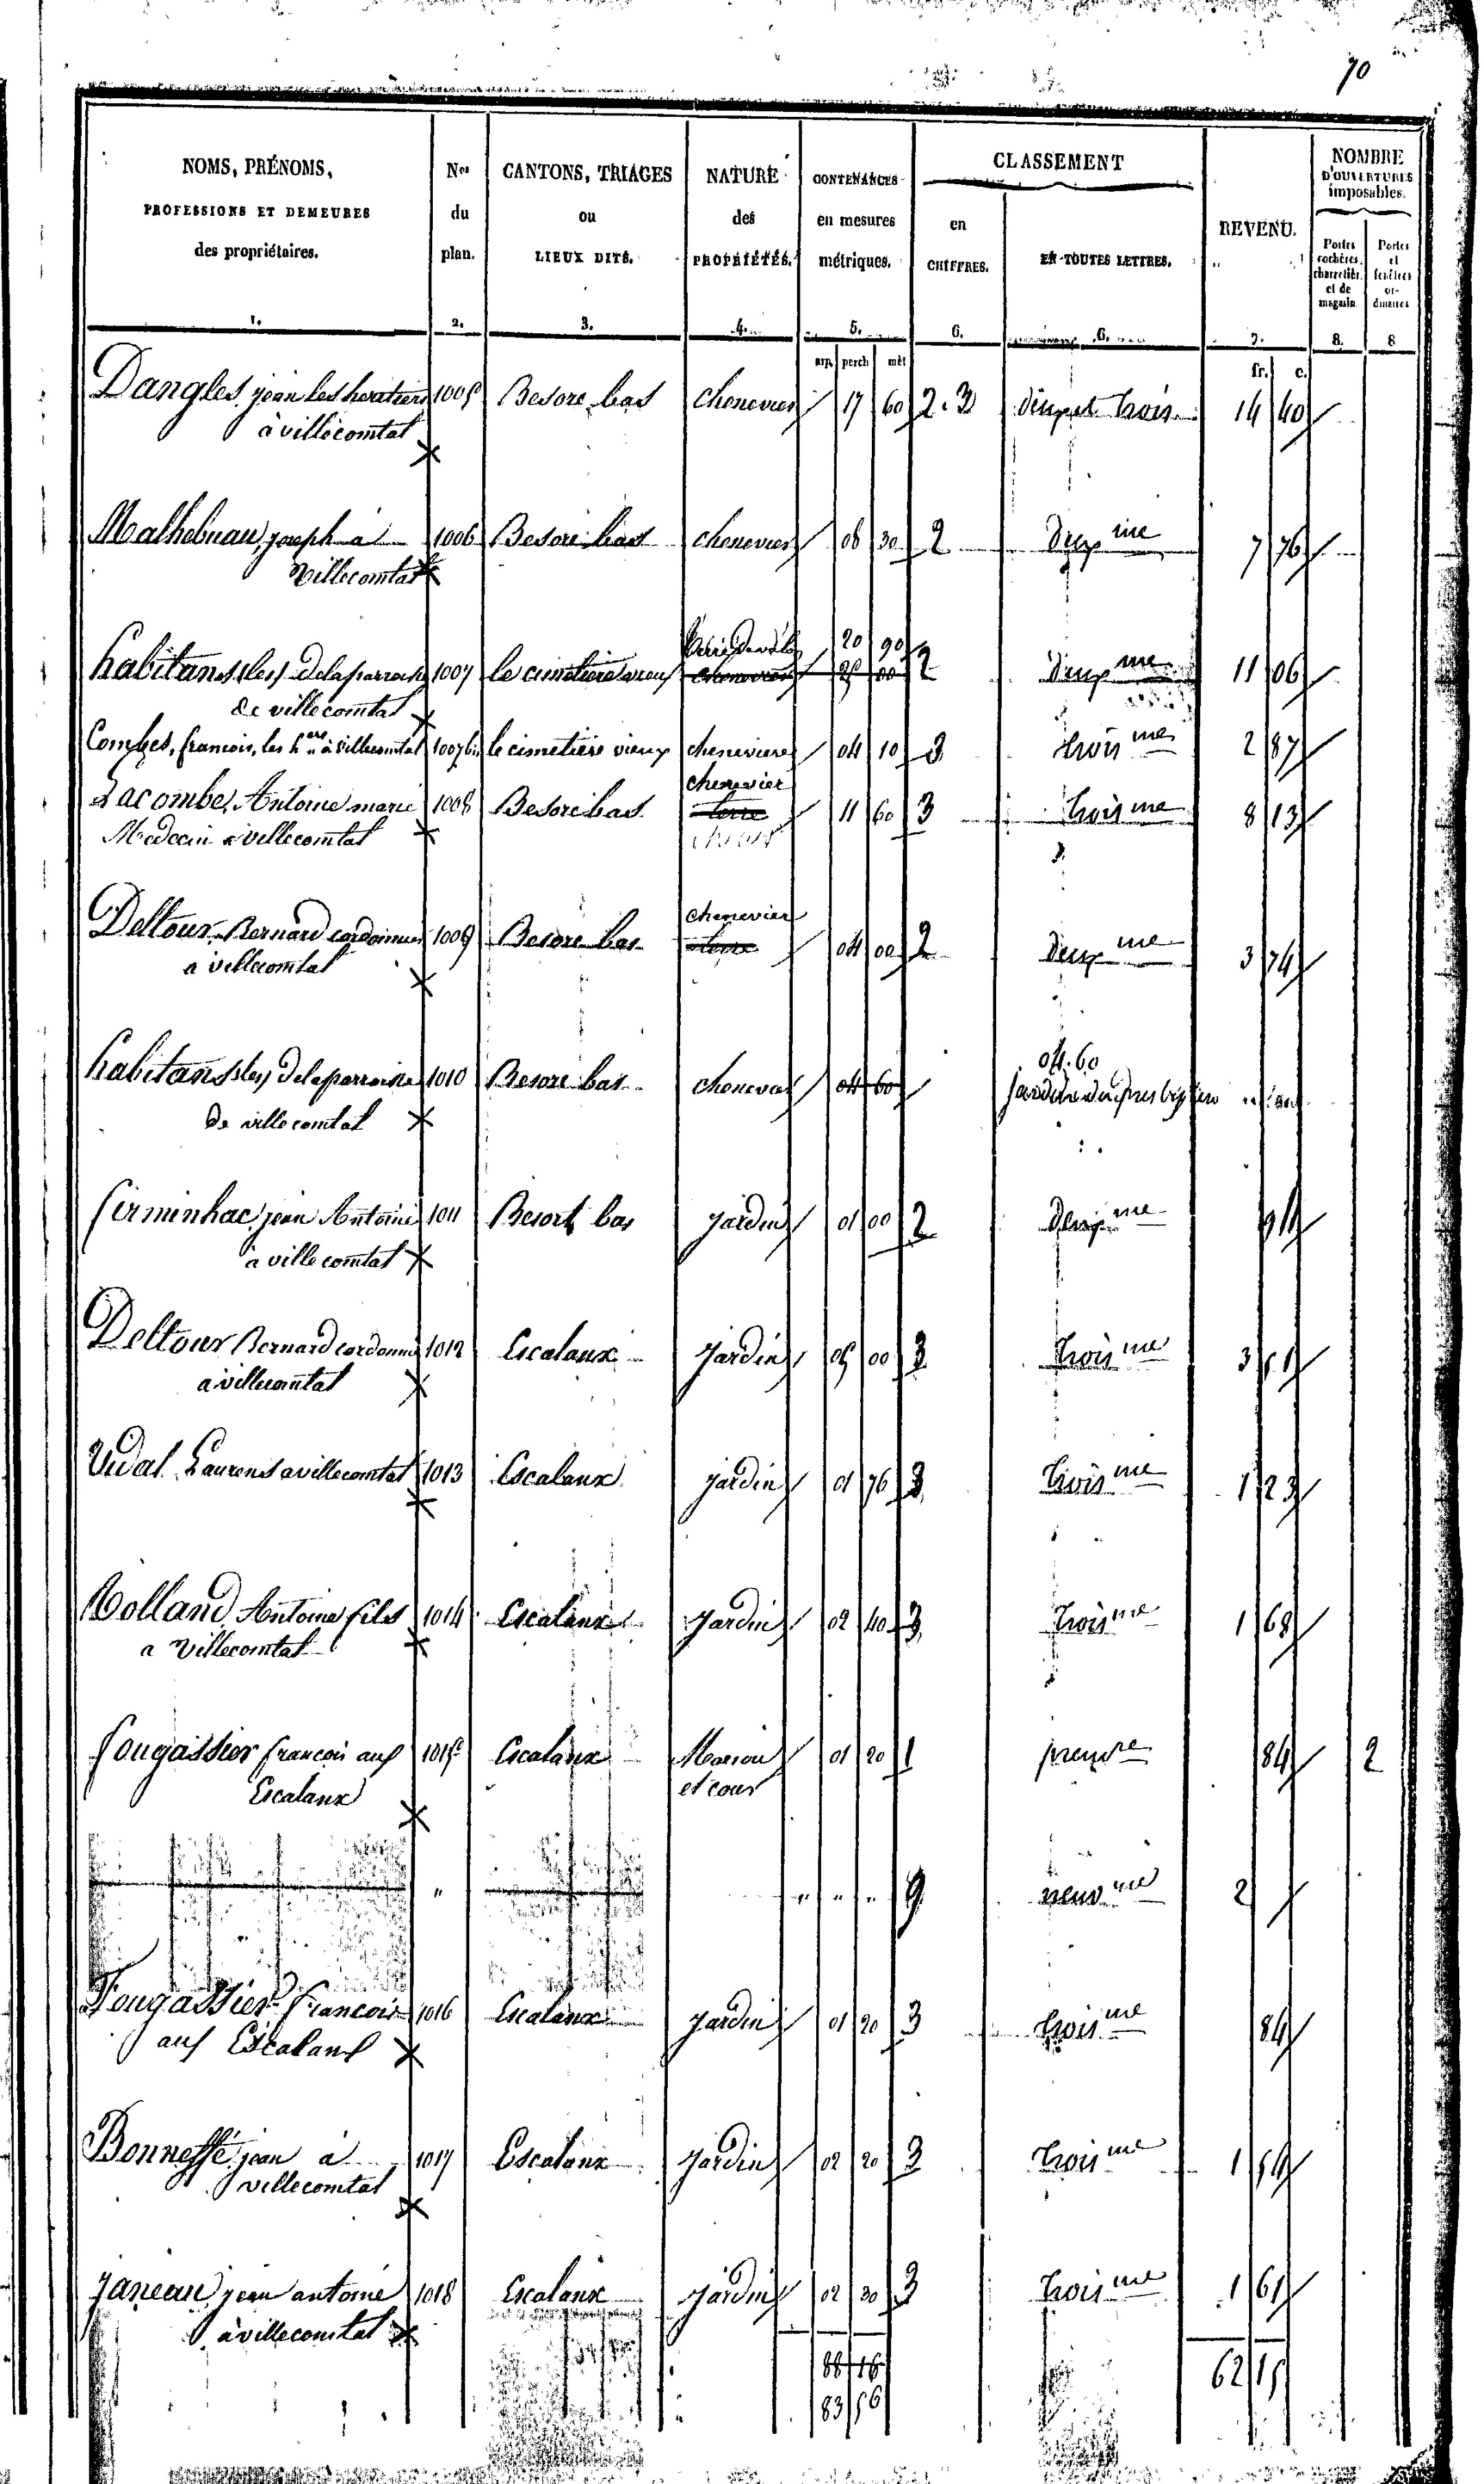 70
NOMS, PRÉNOMS, PROFESSIONS ET DEMEURES des propriétaires. | Nos du plan. | CANTONS, TRIAGES ou LIEUX DITS. | NATURE des PROPRIÉTÉS. | CONTENANCES en mesures métriques. | CLASSEMENT en CHIFFRES. | EN TOUTES LETTRES. | REVENU. | NOMBRE D'OUVERTURES imposables. Portes cochères, charretières et de magasin | Portes et fenêtres ordinaires
1. 2. 3. 4. 5. 6. 6. 7. 8. 8
arp. perch mèt fr. c.
Dangles, jean les heritiers 1005 Besore bas chenevier 17 60 2.3 deux et trois 14 40
à villecomtal
Malhebuau, joseph à 1006 Besore bas chenevier 08 30 2 deux me 7 76
Villecomtal
20 90
habitans (les) de la parroisse 1007 le cimetière vieux chenevier 25 00 2 deux me 11 06
de villecomtal
Combes, francois, les h ers à villecomtal 1007 bis le cimetière vieux cheneviere 04 10 3 trois me 2 87
chenevier
Lacombe, Antoine marie 1008 Besore bas terre 11 60 3 trois me 8 13
Medecin a villecomtal
chenevier
Deltour, Bernard cordonnier 1009 Besore bas terre 04 00 2 deux me 3 74
a villecomtal
04.60
habitans (les) de la parroisse 1010 Besore bas chenevier 04 60 jardin du
de villecomtal
firminhac, jean Antoine 1011 Besort bas jardin 01 00 2 deux me 94
à villecomtal
Deltour Bernard cordonnier 1012 Escalaux jardin 05 00 3 trois me 3 51
a villecomtal
Vidal Laurens a villecomtal 1013 Escalaux jardin 01 76 3 trois me 1 23
Rolland Antoine fils 1014 Escalaux jardin 02 40 3 trois me 1 68
a Villecomtal
fougassier francois aux 1015 Escalaux Maison 01 20 1 premre 84 2
Escalaux et cour
" " " " 9 neuv me 2
Fougassier francois 1016 Escalaux jardin 01 20 3 trois me 84
aux Escalaux
Bonneffé jean à 1017 Escalaux jardin 02 20 3 trois me 1 54
villecomtal
janeau jean antoine 1018 Escalaux jardin 02 30 3 trois me 1 61
à villecomtal
88 16
62 15
83 56